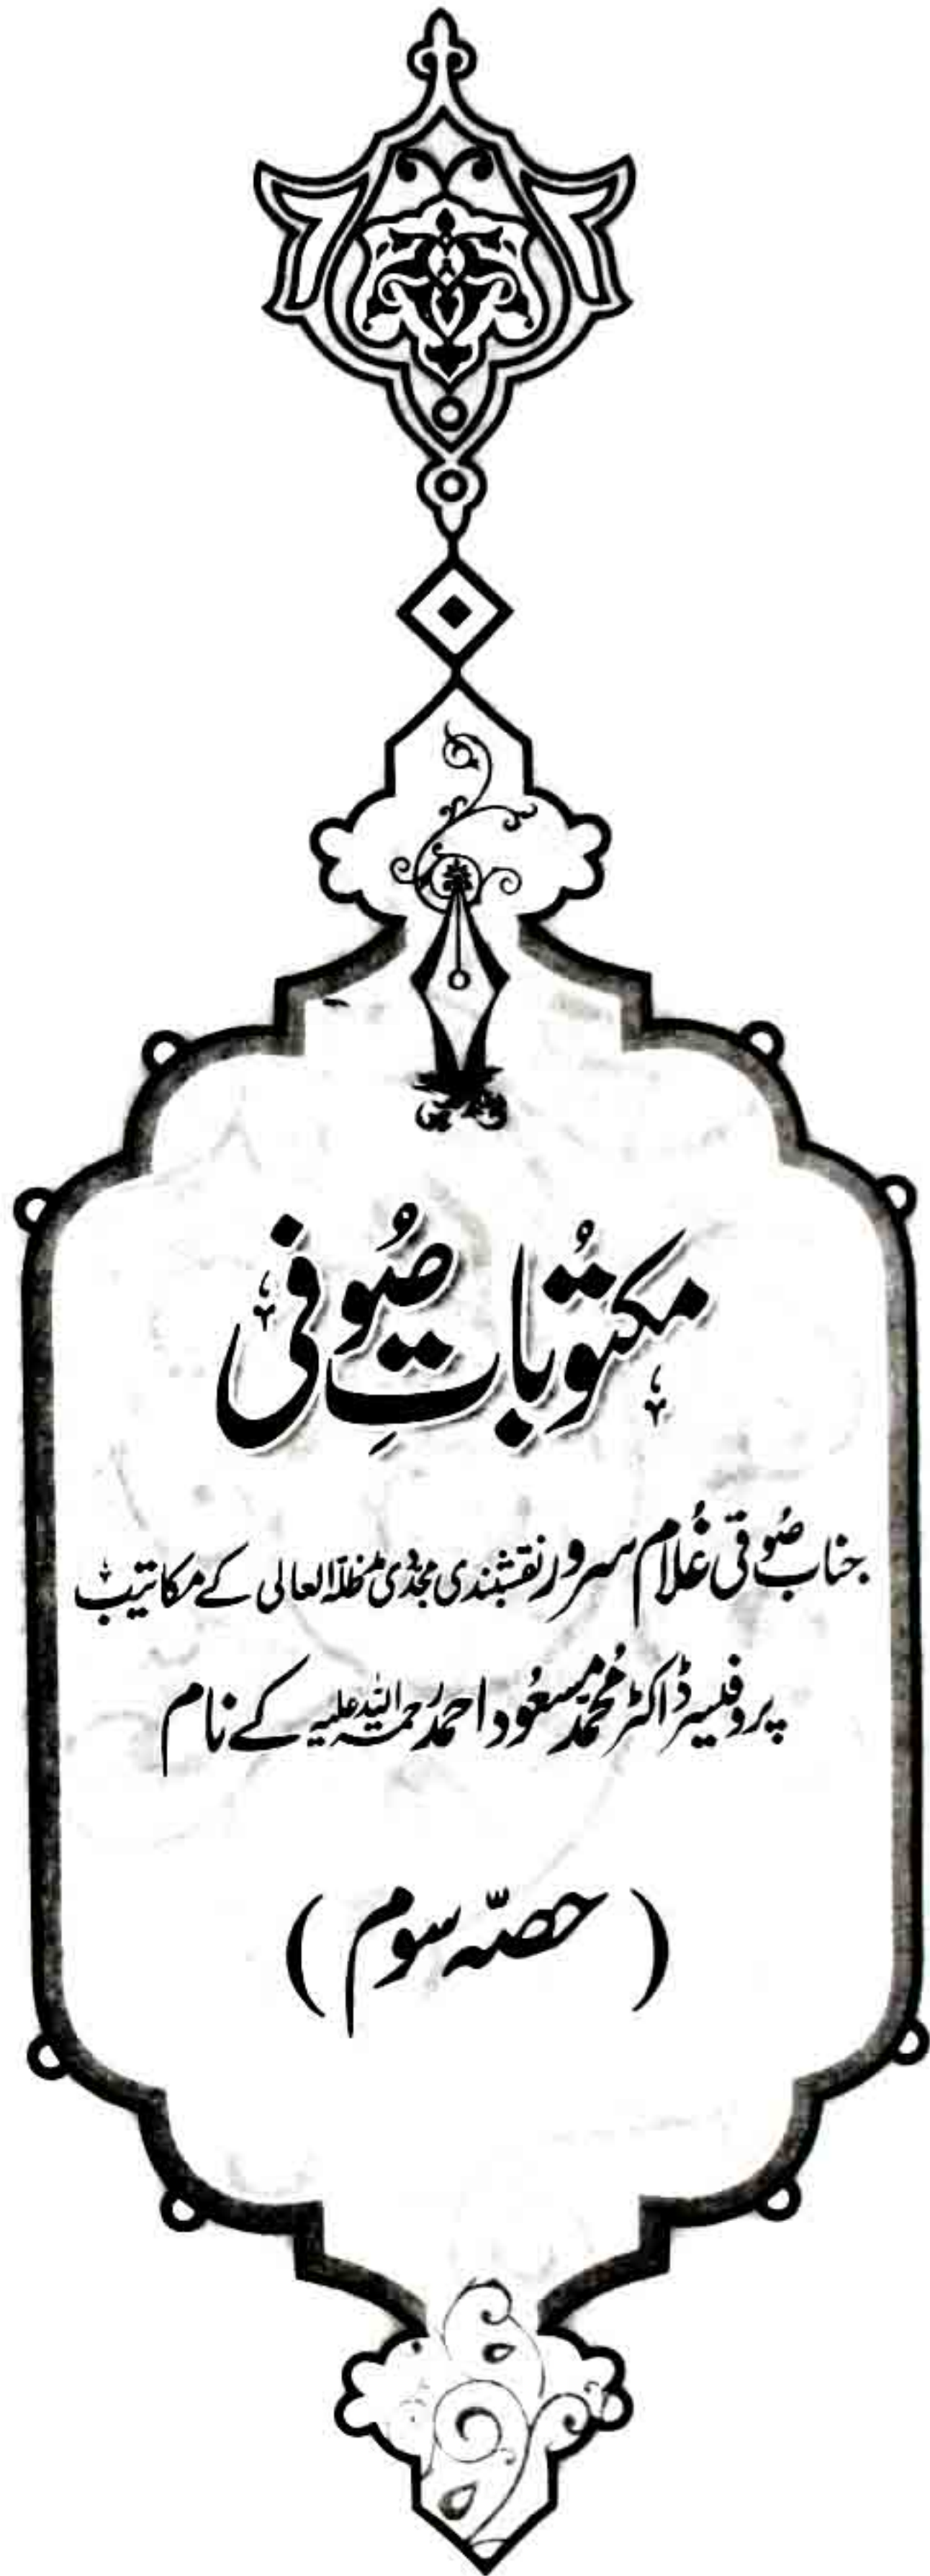 مکتُوباتِ صُوفی
جناب صُوفی غُلام سرور نقشبندی مجدّدی مدظلہ العالی کے مکاتیب
پروفیسر ڈاکٹر مُحمّد مسعُود احمد رحمۃ اللہ علیہ کے نام
( حصّہ سوم )